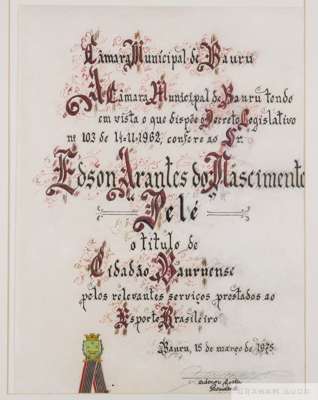 Câmara Municipal de Bauru
A Câmara Municipal de Bauru tendo
em vista o que dispõe o Decreto Legislativo
nº 103 de 14-11-1962, confere ao Sr.
Edson Arantes do Nascimento
Pelé
o titulo de
Cidadão Bauruense
pelos relevantes serviços prestados ao
Esporte Brasileiro
Bauru, 15 de março de 1975.
GRAHAM BUDD